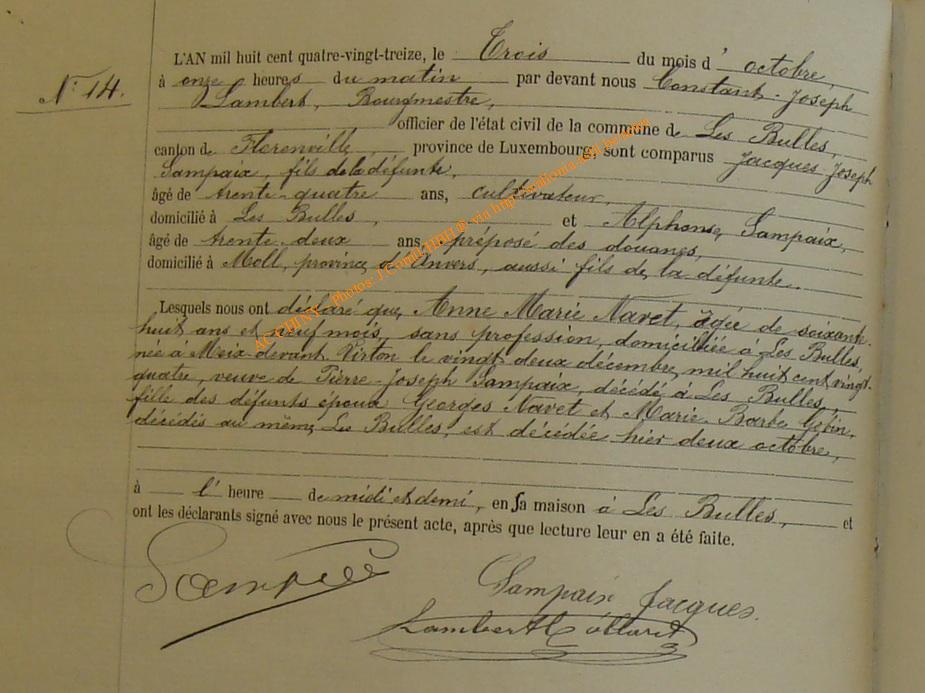 N° 14.
L'AN mil huit cent quatre-vingt-treize, le Trois du mois d' octobre,
à onze heures du matin par devant nous Constant-Joseph
Lambert, Bourgmestre,
officier de l'état civil de la commune de Les Bulles,
canton de Florenville, province de Luxembourg, sont comparus Jacques Joseph
Sampaix, fils de la défunte,
âgé de trente-quatre ans, cultivateur,
domicilié à Les Bulles, et Alphonse Sampaix,
âgé de trente-deux ans, préposé des douanes,
domicilié à Moll, province d'Anvers, aussi fils de la défunte.
Lesquels nous ont déclaré que Anne Marie Navet, âgée de soixante-
huit ans et neuf mois, sans profession, domiciliée à Les Bulles,
née à Meix-devant-Virton le vingt-deux décembre mil huit cent vingt-
quatre, veuve de Pierre-Joseph Sampaix, décédé à Les Bulles,
fille des défunts époux Georges Navet et Marie-Barbe
décédés au même Les Bulles, est décédée hier deux octobre,
à l' heure de midi et demi, en sa maison à Les Bulles, et
ont les déclarants signé avec nous le présent acte, après que lecture leur en a été faite.
Sampaix
Sampaix Jacques.
Lambert Collard
ACCHINY Photos J.Comit.HBH® via http://scafioma.eklablog